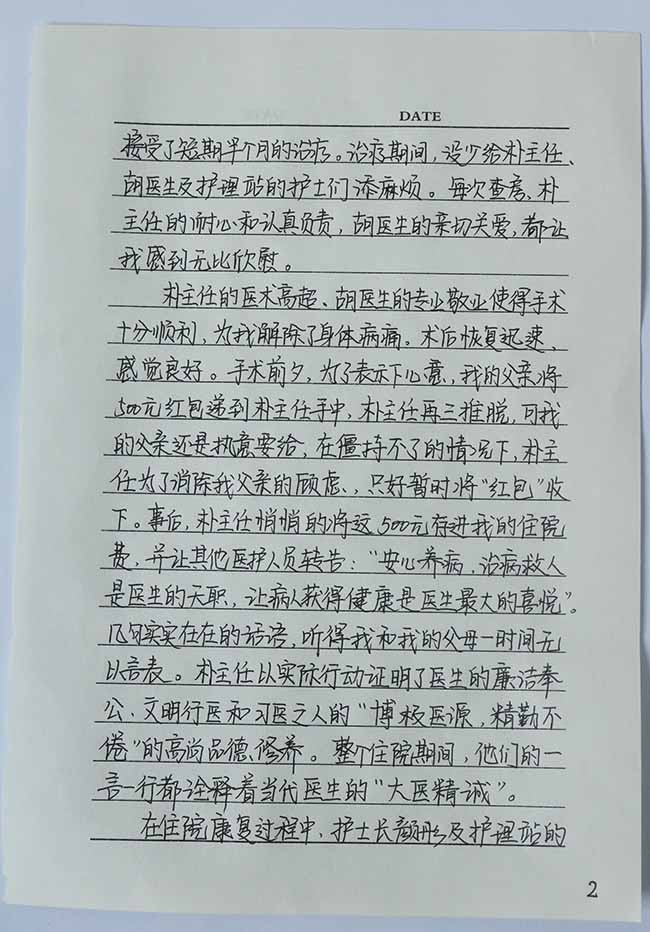 DATE
接受了短期半个月的治疗。治疗期间,没少给朴主任、
胡医生及护理站的护士们添麻烦。每次查房、朴
主任的耐心和认真负责,胡医生的亲切关爱,都让
我感到无比欣慰。
朴主任的医术高超、胡医生的专业敬业使得手术
十分顺利,为我解除了身体病痛。术后恢复迅速、
感觉良好。手术前夕,为了表示下心意,我的父亲将
500元红包递到朴主任手中,朴主任再三推脱,可我
的父亲还是执意要给,在僵持不了的情况下,朴主
任为了消除我父亲的顾虑,只好暂时将“红包”收
下。事后,朴主任悄悄的将这500元存进我的住院
费,并让其他医护人员转告:“安心养病,治病救人
是医生的天职,让病人获得健康是医生最大的喜悦”。
几句实实在在的话语,听得我和我的父母一时间无
以言表。朴主任以实际行动证明了医生的廉洁奉
公、文明行医和习医之人的“博极医源,精勤不
倦”的高尚品德、修养。整个住院期间,他们的一
言一行都诠释着当代医生的“大医精诚”。
在住院康复过程中,护士长颜彤及护理站的
2